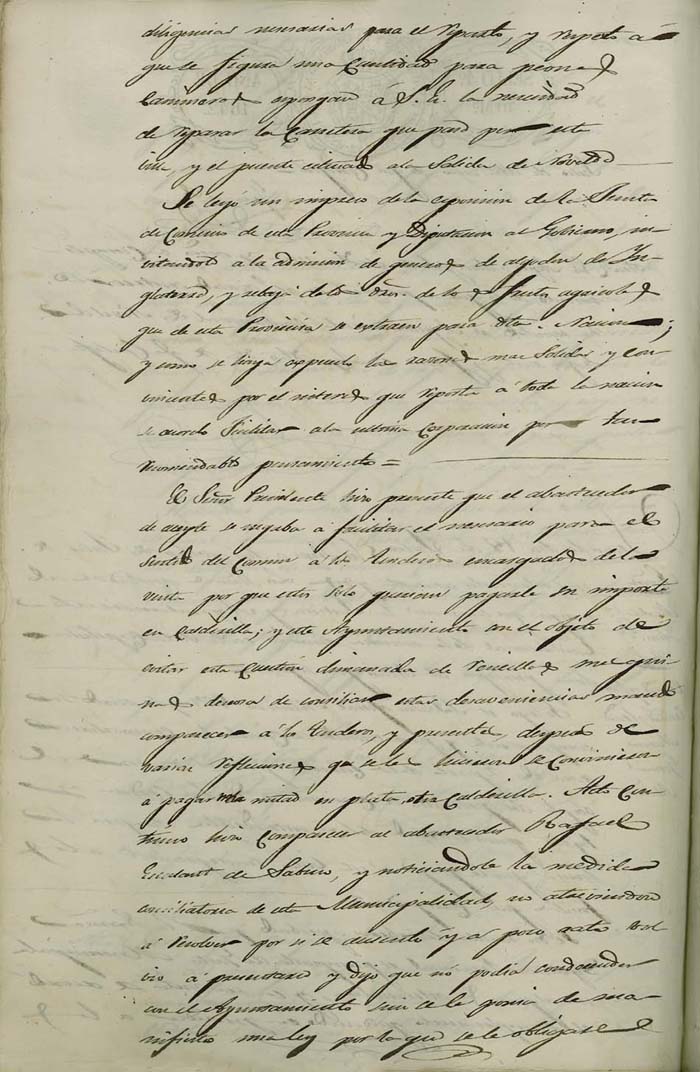 diligencias necesarias para el reparto, y respeto á
que se figura una cantidad para peones
Camineros espongan á S. E. la necesidad
de reparar la Carretera que pasa por esta
villa, y el puente situado á la Salida de Novelda
Se leyó un impreso de la esposicion de la Junta
de Comercio de esta Provincia y Diputacion al Gobierno, in-
citandole a la admision de generos de algodon de In-
glaterra, y rebaja de los dros. de los frutos agricolas
que de esta Provincia se extraen para dha. Nacion;
y como se haya expuesto las razones mas Solidas y con-
vincentes por el interes que reporta á toda la nacion
se acordo felicitar a la ultima Corporacion por tan
recomendable pensamiento =
El Señor Presidente hizo presente que el abastecedor
de aceyte se negaba á facilitar el necesario para el
surtido del Comun á los tenderos encargados de la
venta por que estos solo querian pagarle su importe
en Calderilla; y este Ayuntamiento con el objeto de
evitar esta Cuestion dimanada de rencillas mezqui-
nas deseosa de conciliar estas desaveniencias mandó
comparecer á los tenderos, y presentes, despues de
varias reflecciones que se les hicieron se convinieron
á pagar mitad en plata, otra Calderilla. Acto Con-
tinuo hizo comparecer al abastecedor Rafael
de Sabuco, y noticiandole la medida
conciliatoria de esta Municipalidad, no atreviendose
á resolver por si se ausentó y á poco rato vol-
vio á presentarse y dijo que no podia condecender
con el Ayuntamiento sin se le ponia de ma-
nifiesto una ley por la que se le obligase